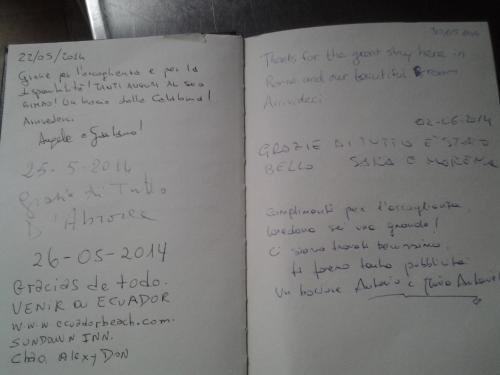 22/05/2014
Grazie per l'accoglienza e per la
disponibilità! TANTI AUGURI AL SUO
Un bacio dalla Calabria!
Arrivederci
Angela e
25-5-2014
Grazie di Tutto
D'
26-05-2014
Gracias de todo.
VENIR a ECUADOR
www.ecuadorbeach.com.
SUNDOWN INN.
Chao. Alex y DON
Thanks for the great stay here in
Rome and our beautiful room
Arrivederci
02-06-2014
GRAZIE DI TUTTO È STATO
BELLO SARA E MORENA
Complimenti per l'accoglienza,
Loredana sei una grande!
Ci siamo trovati benissimo.
ti faremo tanta pubblicità
Un bacione Antonio e